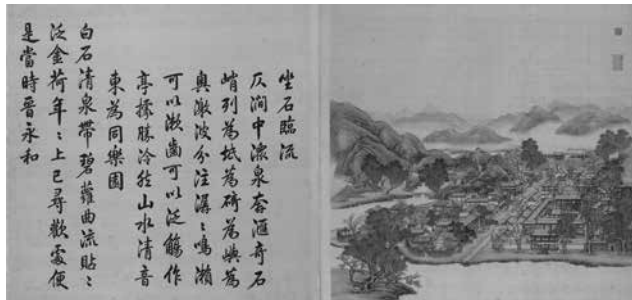 坐石臨流
仄澗中瀠泉奔滙奇石
峭列為坻為碕為嶼為
奥激波分注潺〻鳴瀨
可以漱齒可以泛觴作
亭據勝泠然山水清音
東為同樂園
白石清泉帶碧蘿曲流貼〻
泛金荷年〻上巳尋歡處便
是當時晉永和